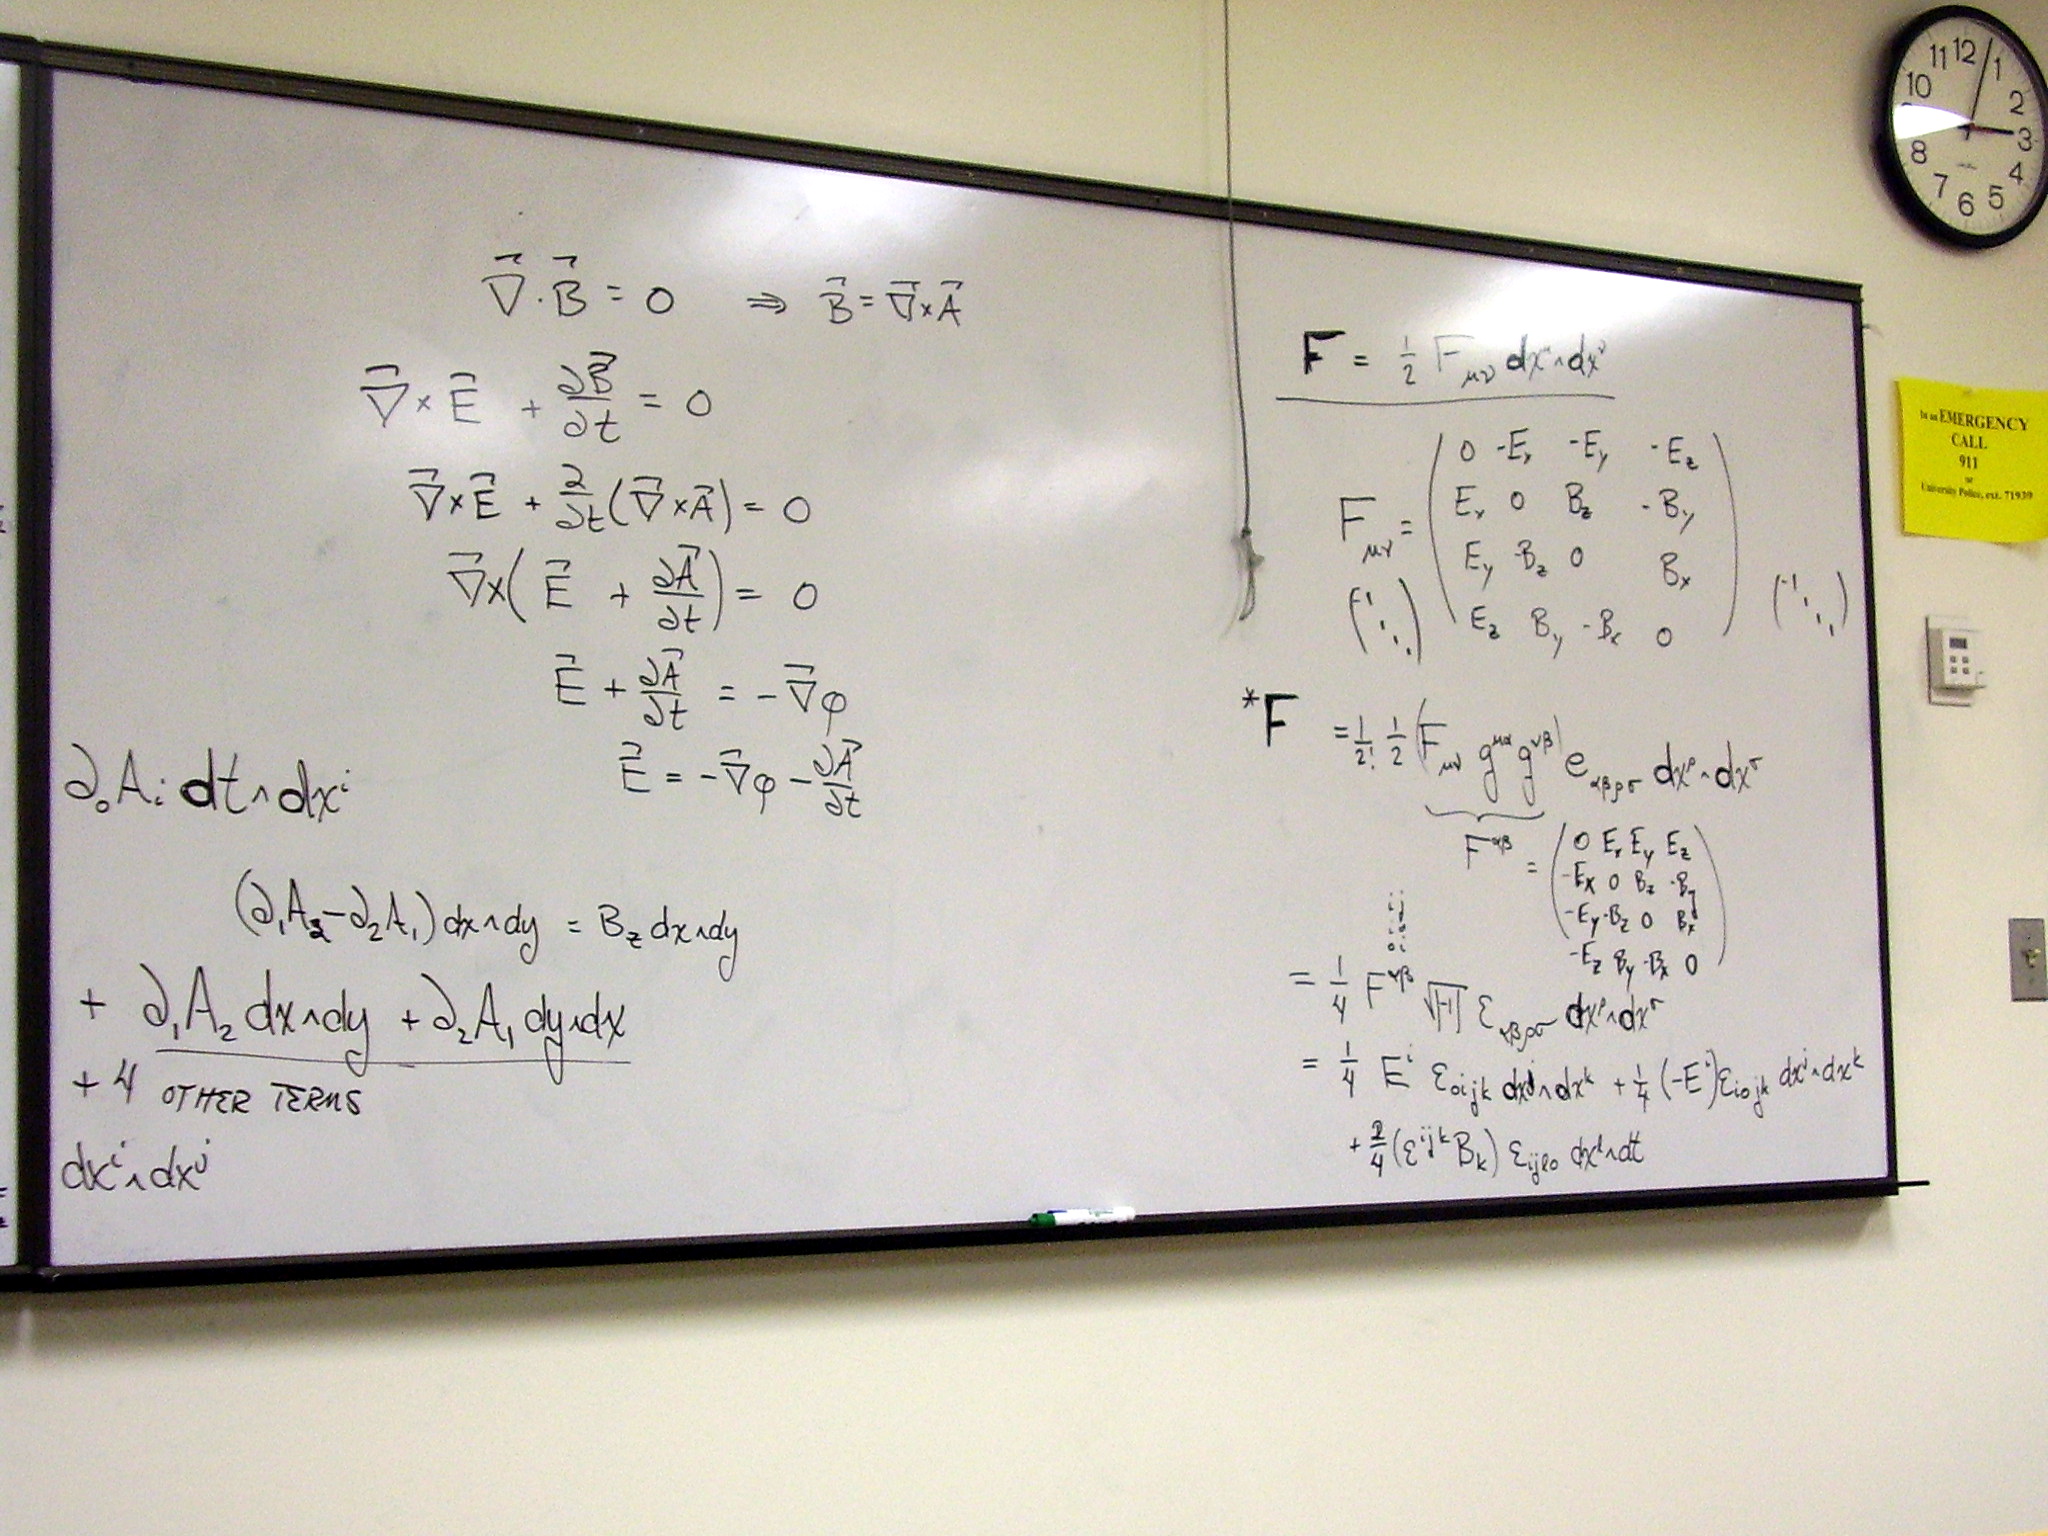 ∇⃗·B⃗ = 0 ⇒ B⃗ = ∇⃗×A⃗
∇⃗×E⃗ + ∂B⃗/∂t = 0
∇⃗×E⃗ + ∂/∂t(∇⃗×A⃗) = 0
∇⃗×(E⃗ + ∂A⃗/∂t) = 0
E⃗ + ∂A⃗/∂t = -∇⃗φ
E⃗ = -∇⃗φ - ∂A⃗/∂t
∂₀Aᵢ dt∧dxⁱ
(∂₁A₂-∂₂A₁)dx∧dy = B_z dx∧dy
+ ∂₁A₂ dx∧dy + ∂₂A₁ dy∧dx
+ 4 OTHER TERMS
dxⁱ∧dxʲ
F = 1/2 F_μν dx^μ∧dx^ν
F_μν =
0 -E_x -E_y -E_z
E_x 0 B_z -B_y
E_y -B_z 0 B_x
E_z B_y -B_x 0
(-1 1 1 1)
(-1 1 1 1)
*F = 1/2! 1/2 (F_μν g^μα g^νβ) e_αβρσ dx^ρ∧dx^σ
F^αβ =
0 E_x E_y E_z
-E_x 0 B_z -B_y
-E_y -B_z 0 B_x
-E_z B_y -B_x 0
ij
i0
0i
= 1/4 F^αβ √|-1| ε_αβρσ dx^ρ∧dx^σ
= 1/4 Eⁱ ε_0ijk dxʲ∧dxᵏ + 1/4 (-Eⁱ)ε_i0jk dxʲ∧dxᵏ
+ 2/4 (ε^ijk B_k) ε_ijl0 dx^l∧dt
11 12 1
10 2
3
8 4
7 6 5
In an EMERGENCY
CALL
911
or
University Police, ext. 71939